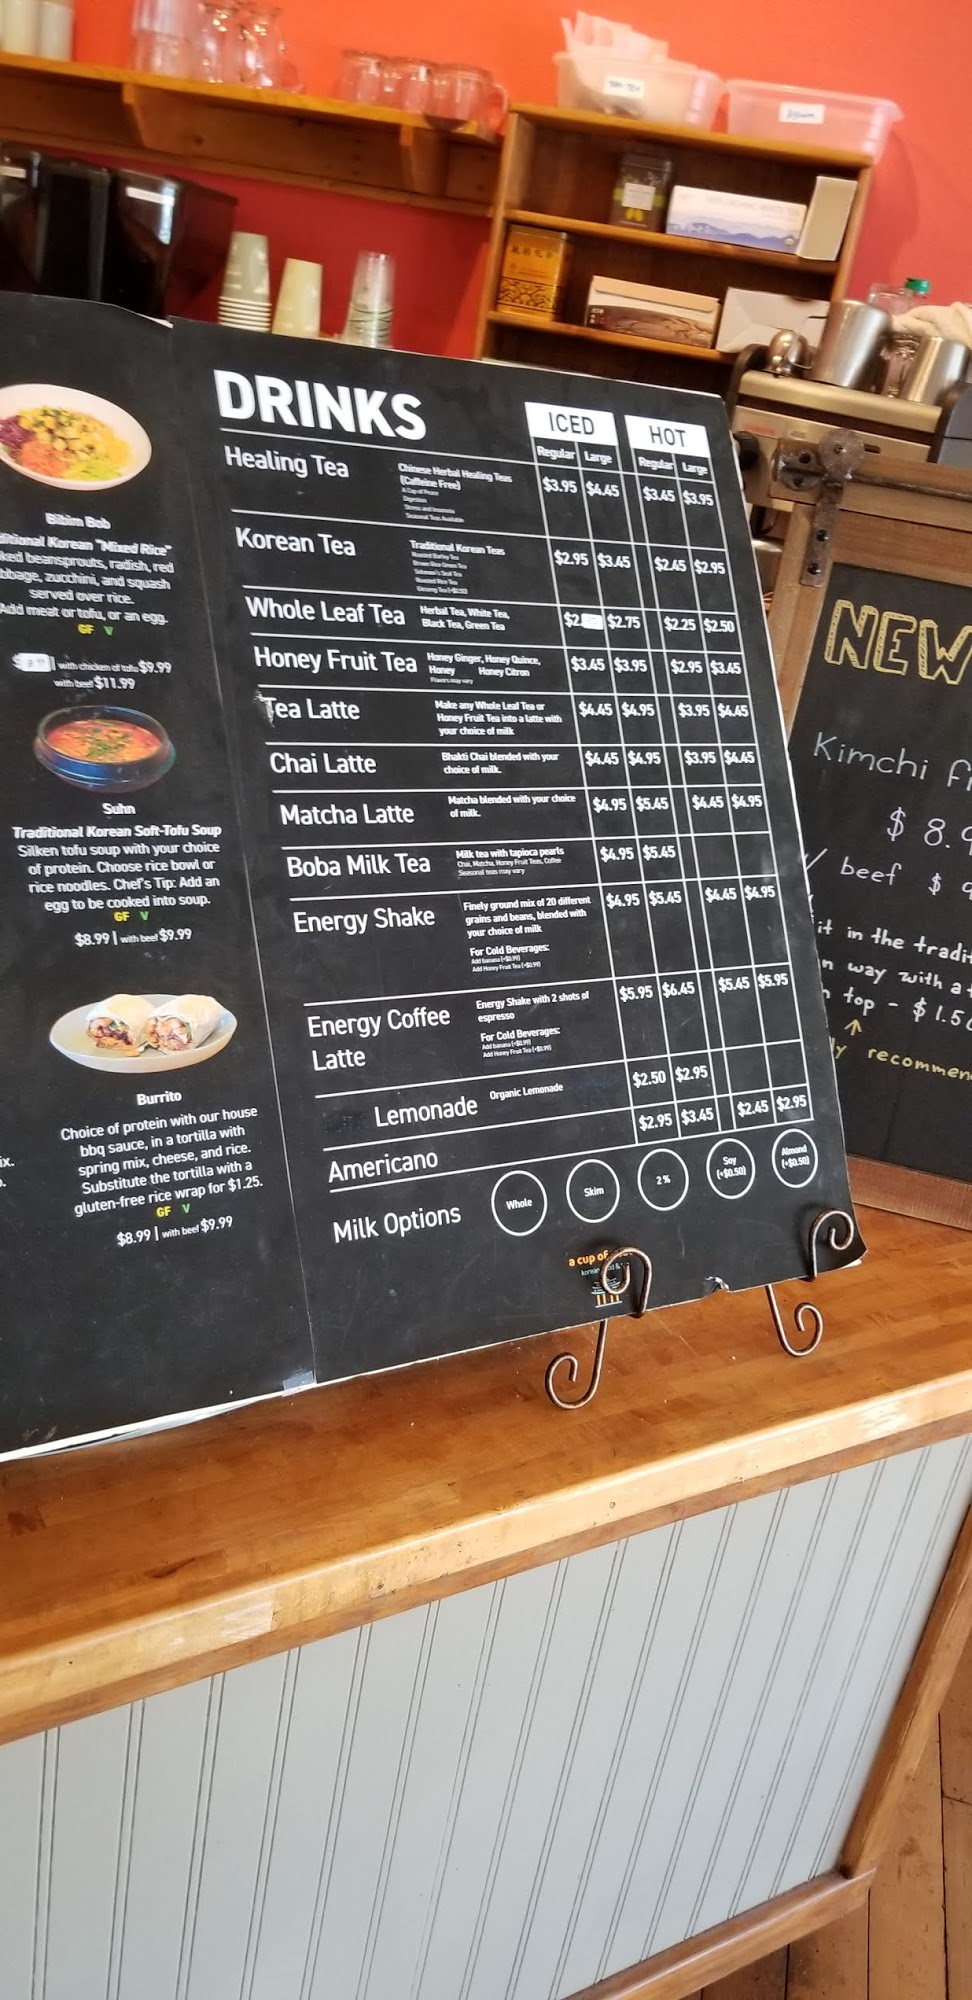 Bibim Bob
ditional Korean "Mixed Rice"
ked beansprouts, radish, red
bbage, zucchini, and squash
served over rice.
Add meat or tofu, or an egg.
GF V
$ | with chicken or tofu $9.99
with beef $11.99
Suhn
Traditional Korean Soft-Tofu Soup
Silken tofu soup with your choice
of protein. Choose rice bowl or
rice noodles. Chef's Tip: Add an
egg to be cooked into soup.
GF V
$8.99 | with beef $9.99
Burrito
Choice of protein with our house
bbq sauce, in a tortilla with
spring mix, cheese, and rice.
Substitute the tortilla with a
gluten-free rice wrap for $1.25.
GF V
$8.99 | with beef $9.99
ix.
DRINKS
ICED HOT
Regular Large Regular Large
Healing Tea
Chinese Herbal Healing Teas
(Caffeine Free)
A Cup of Peace
Digestion
Stress and Insomnia
Seasonal Teas Available
$3.95 $4.45 $3.45 $3.95
Korean Tea
Traditional Korean Teas
Roasted Barley Tea
Brown Rice Green Tea
Solomon's Seal Tea
Roasted Rice Tea
Ginseng Tea (+$0.50)
$2.95 $3.45 $2.45 $2.95
Whole Leaf Tea
Herbal Tea, White Tea,
Black Tea, Green Tea
$2. $2.75 $2.25 $2.50
Honey Fruit Tea
Honey Ginger, Honey Quince,
Honey Honey Citron
Flavors may vary
$3.45 $3.95 $2.95 $3.45
Tea Latte
Make any Whole Leaf Tea or
Honey Fruit Tea into a latte with
your choice of milk
$4.45 $4.95 $3.95 $4.45
Chai Latte
Bhakti Chai blended with your
choice of milk.
$4.45 $4.95 $3.95 $4.45
Matcha Latte
Matcha blended with your choice
of milk.
$4.95 $5.45 $4.45 $4.95
Boba Milk Tea
Milk tea with tapioca pearls
Chai, Matcha, Honey Fruit Teas, Coffee
Seasonal teas may vary
$4.95 $5.45
Energy Shake
Finely ground mix of 20 different
grains and beans, blended with
your choice of milk
For Cold Beverages:
Add banana (+$0.99)
Add Honey Fruit Tea (+$0.99)
$4.95 $5.45 $4.45 $4.95
Energy Coffee
Latte
Energy Shake with 2 shots of
espresso
For Cold Beverages:
Add banana (+$0.99)
Add Honey Fruit Tea (+$0.99)
$5.95 $6.45 $5.45 $5.95
Lemonade
Organic Lemonade
$2.50 $2.95
Americano
$2.95 $3.45 $2.45 $2.95
Milk Options
Whole
Skim
2%
Soy
(+$0.50)
Almond
(+$0.50)
a cup of
NEW
Kimchi
$ 8.
w/ beef $ 9
it in the tradit
n way with a
top - $1.50
ly recommen